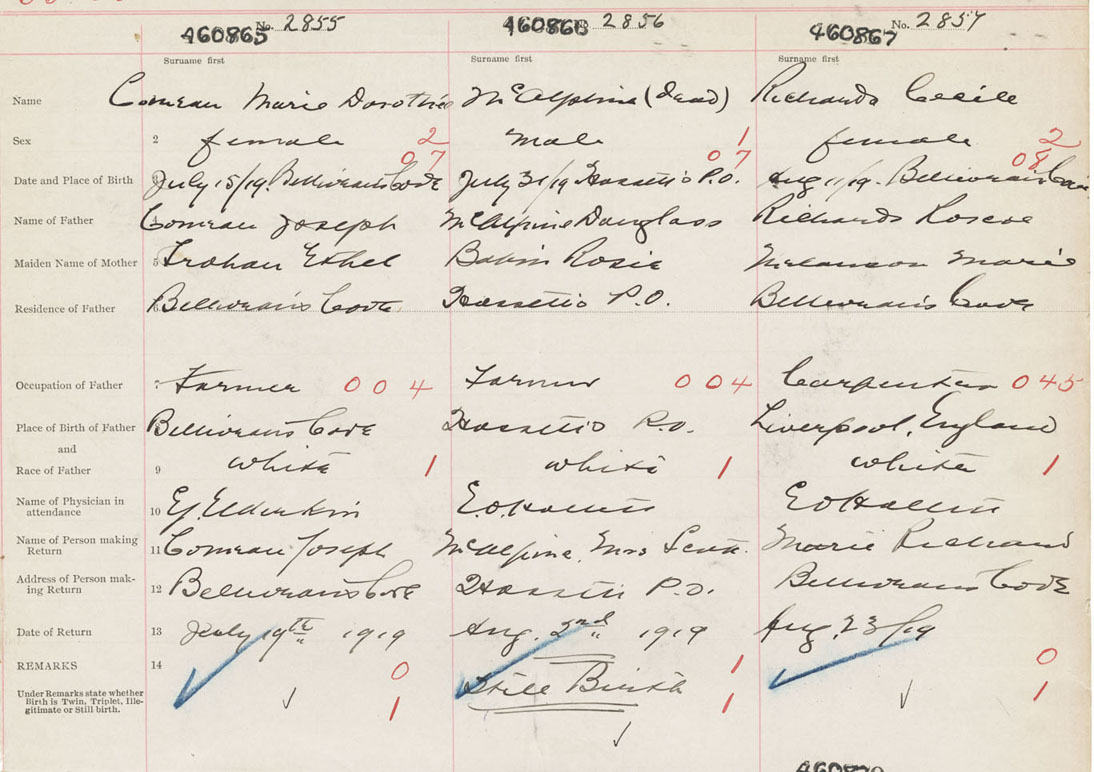 460865 No. 2855 460866 No. 2856 460867 No. 2857
Surname first Surname first Surname first
Name Comeau Marie Dorothée McAlpine (dead) Richards Cecile
Sex 2 female 2 male 1 female 2
07 07 08
Date and Place of Birth July 15/19. Belliveau's Cove July 31/19 P.O. Aug 11/19. Belliveau's Cove
Name of Father Comeau Joseph McAlpine Douglass Richards Roscoe
Maiden Name of Mother 5 Trohan Ethel Babin Rosie Melanson Marie
Residence of Father 6 Belliveau's Cove P.O. Belliveau's Cove
Occupation of Father 7 Farmer 004 Farmer 004 Carpenter 045
Place of Birth of Father Belliveau's Cove P.O. Liverpool, England
and
Race of Father 9 white 1 white 1 white 1
Name of Physician in
attendance 10 Elderkin E.O. E O
Name of Person making
Return 11 Comeau Joseph McAlpine, Mrs Marie Richard
Address of Person mak-
ing Return 12 Belliveau's Cove P.O. Belliveau's Cove
Date of Return 13 July 19th 1919 Aug. 2nd 1919 Aug. 23/19
REMARKS 14 0 1 0
Under Remarks state whether
Birth is Twin, Triplet, Ille-
gitimate or Still birth. 1 Still Birth 1 1